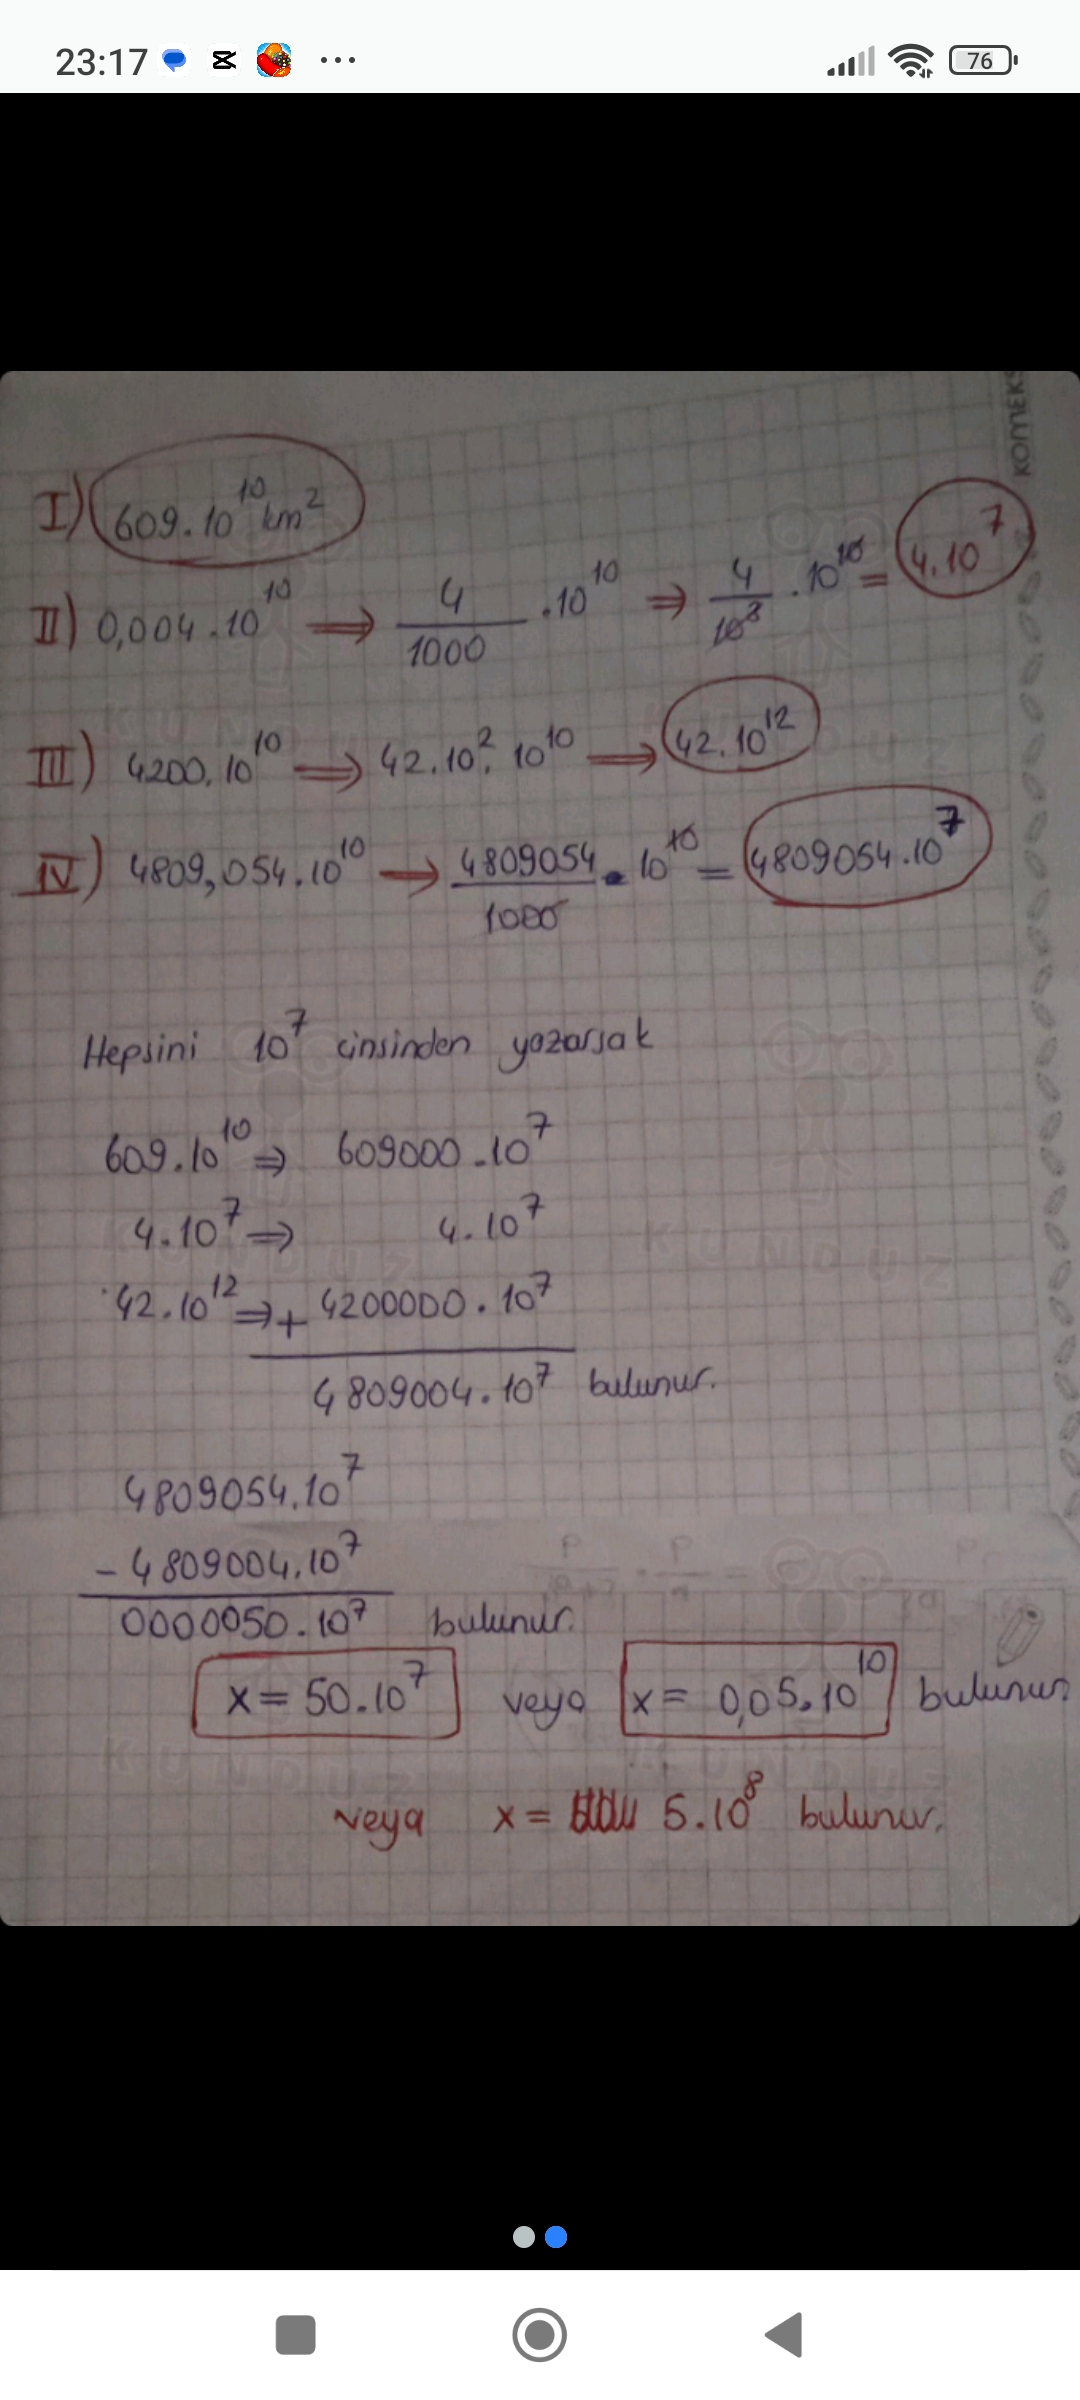 23:17 ... 76
KOMEKS
I) 609.10¹⁰ km²
II) 0,004.10¹⁰ ⟹ 4/1000 .10¹⁰ ⟹ 4/10³ .10¹⁰ = 4.10⁷
III) 4200.10¹⁰ ⟹ 42.10².10¹⁰ ⟹ 42.10¹²
IV) 4809,054.10¹⁰ → 4809054/1000 . 10¹⁰ = 4809054.10⁷
Hepsini 10⁷ cinsinden yazarsak
609.10¹⁰ ⇒ 609000.10⁷
4.10⁷ ⇒ 4.10⁷
42.10¹² ⇒ + 4200000.10⁷
4809004.10⁷ bulunur.
4809054.10⁷
- 4809004.10⁷
0000050.10⁷ bulunur.
x = 50.10⁷ veya x = 0,05.10¹⁰ bulunur.
veya x = 5.10⁸ bulunur.
KUNDUZ
KUNDUZ
KUNDUZ
KUNDUZ
KUNDUZ
KUNDUZ